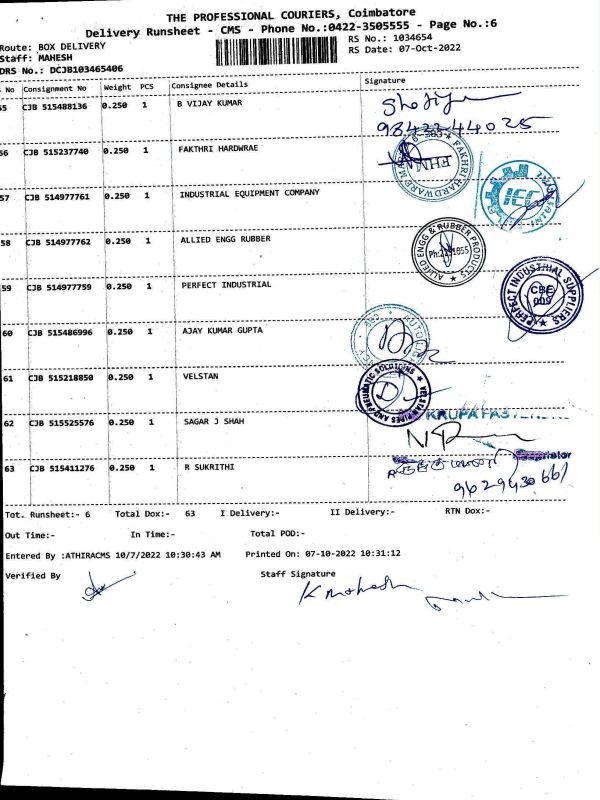 THE PROFESSIONAL COURIERS, Coimbatore
Delivery Runsheet - CMS - Phone No.:0422-3505555 - Page No.:6
Route: BOX DELIVERY
RS No.: 1034654
Staff: MAHESH
RS Date: 07-Oct-2022
DRS No.: DCJB103465406
No Consignment No Weight PCS Consignee Details Signature
55 CJB 515488136 0.250 1 B VIJAY KUMAR
56 CJB 515237740 0.250 1 FAKTHRI HARDWRAE
FAKHRI HARDWARE
FHM
57 CJB 514977761 0.250 1 INDUSTRIAL EQUIPMENT COMPANY
IEC
58 CJB 514977762 0.250 1 ALLIED ENGG RUBBER
ALLIED ENGG & RUBBER PRODUCTS
59 CJB 514977759 0.250 1 PERFECT INDUSTRIAL
PERFECT INDUSTRIAL SUPPLIERS
CBE
60 CJB 515486996 0.250 1 AJAY KUMAR GUPTA
61 CJB 515218850 0.250 1 VELSTAN
VELSTAN PIPES AND PNEUMATIC SOLUTIONS
62 CJB 515525576 0.250 1 SAGAR J SHAH
KRUPA
Proprietor
63 CJB 515411276 0.250 1 R SUKRITHI
Tot. Runsheet:- 6 Total Dox:- 63 I Delivery:- II Delivery:- RTN Dox:-
Out Time:- In Time:- Total POD:-
Entered By :ATHIRACMS 10/7/2022 10:30:43 AM Printed On: 07-10-2022 10:31:12
Verified By Staff Signature
K mahesh